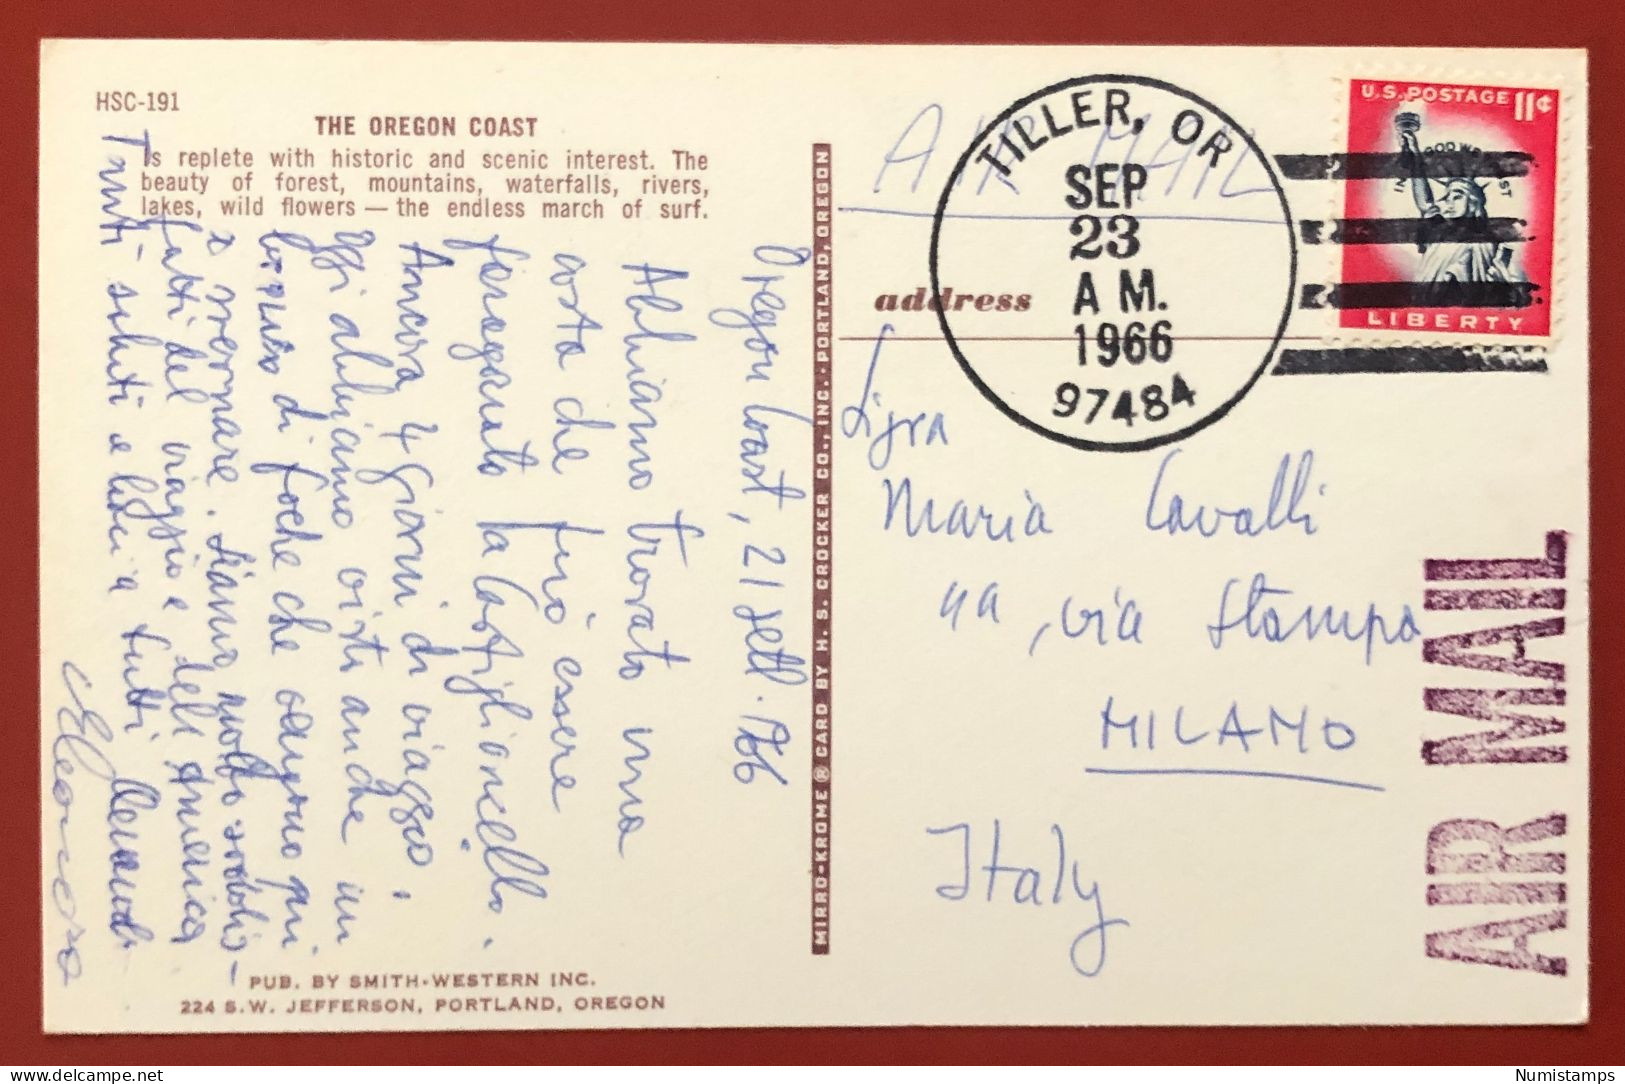 HSC-191
THE OREGON COAST
Is replete with historic and scenic interest. The
beauty of forest, mountains, waterfalls, rivers,
lakes, wild flowers — the endless march of surf.
Oregon Coast, 21 sett. '966
Abbiamo trovato una
costa che può essere
paragonata la Castiglioncello.
Ancora 4 giorni di viaggio.
Oggi abbiamo visto anche un
branco di foche che vengono qui
a svernare. Siamo molto soddis-
fatti del viaggio e dell'America
Tanti saluti e baci a tutti
Eleonora
PUB. BY SMITH-WESTERN INC.
224 S.W. JEFFERSON, PORTLAND, OREGON
MIRRO-KROME ® CARD BY H. S. CROCKER CO., INC.-PORTLAND, OREGON
AIR MAIL
TILLER, OR
SEP
23
A M.
1966
97484
U.S. POSTAGE 11¢
IN GOD WE TRUST
LIBERTY
address
Sigra
Maria Cavalli
4a, via Stampa
MILANO
Italy
AIR MAIL
Numistamps